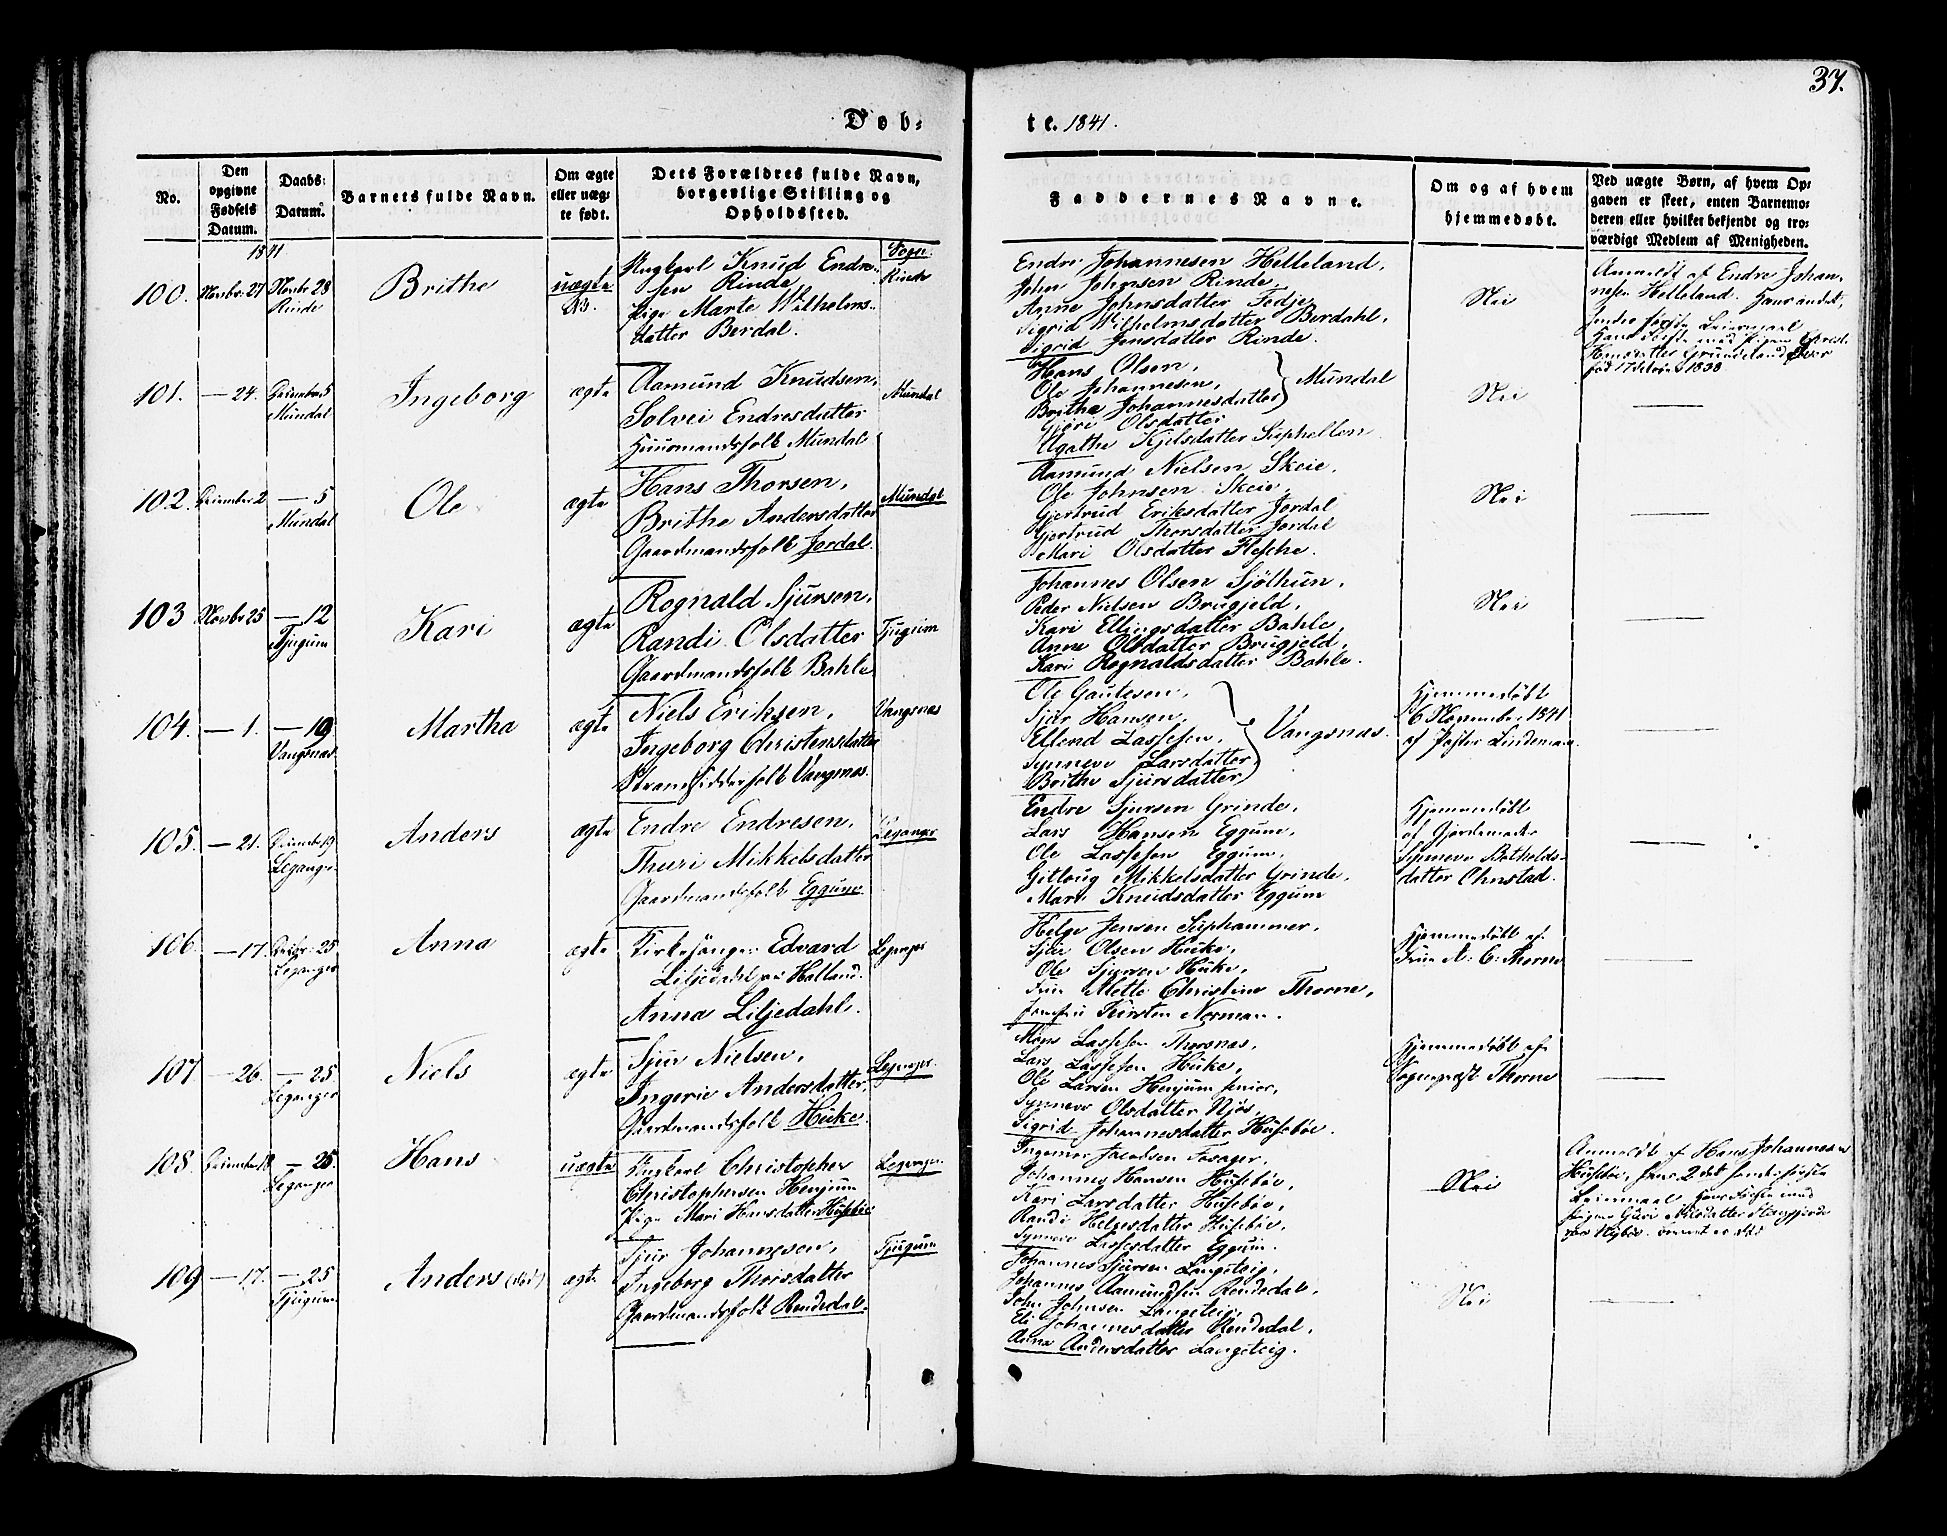 37.
Døb-
te. 1841.
No.
Den opgivne Fødsels Datum.
Daabs: Datum.
Barnets fulde Navn.
Om ægte eller uæg- te født.
Dets Forældres fulde Navn, borgerlige Stilling og Opholdssted.
Faddernes Navne.
Om og af hvem hjemmedøbt.
Ved uægte Børn, af hvem Op- gaven er skeet, enten Barnemo- deren eller hvilket bekjendt og tro- værdigt Medlem af Menigheden.
1841
Sogn.
100. Novbr. 27 Novbr 28 Rinde
Brithe
uægte
Ungkarl Knud Endre-
sen Rinde
Pige Marte Wilhelms-
datter Berdal.
Rinde
Endre Johannesen Helleland,
John Johnsen Rinde,
Anne Johnsdatter Fedje
Sigrid Wilhelmsdatter Berdahl,
Sigrid Jensdatter Rinde.
Nei
Anmeldt af Endre Johan-
nesen Helleland. Hans andet,
hendes første Leiermaal
101. — 24. December 5 Mundal
Ingeborg
ægte
Aamund Knudsen,
Solvei Endresdatter
Huusmandsfolk Mundal
Mundal
Hans Olsen,
Ole Johannesen,
Brithe Johannesdatter
Mundal
Gjøri Olsdatter
Agathe Kjelsdatter Suphellen
Nei
102. December 2 — 5 Mundal
Ole
ægte
Hans Thorsen,
Brithe Andersdatter
Gaardmandsfolk Jordal.
Mundal
Aamund Nielsen Skeie,
Ole Johnsen Skeie,
Gjertrud Eriksdatter Jordal
Gjertrud Thorsdatter Jordal
Mari Olsdatter Flesche.
Nei
103 Novbr 25 — 12 Tjugum
Kari
ægte
Rognald Sjursen,
Randi Olsdatter
Gaardmandsfolk Bahle
Tjugum
Johannes Olsen Sjøthun,
Peder Nielsen Brugjeld,
Kari Ellingsdatter Bahle,
Anne Olsdatter Brugjeld,
Kari Rognaldsdatter Bahle.
Nei
104. — 1. — 19 Vangsnæs
Martha
ægte
Niels Eriksen,
Ingeborg Christensdatter
Strandsidderfolk Vangsnæs.
Vangsnæs
Ole Gautesen,
Sjur Hansen,
Ellend Lassesen,
Synneve Larsdatter
Brithe Sjursdatter
Vangsnæs.
Hjemmedøbt
6 November 1841
af Pastor Lindeman.
105. — 21. December 19 Leganger
Anders
ægte
Endre Endresen,
Thuri Mikkelsdatter
Gaardmandsfolk Eggum
Leganger
Endre Sjursen Grinde,
Lars Hansen Eggum,
Ole Lassesen Eggum,
Gitloug Mikkelsdatter Grinde,
Mari Knudsdatter Eggum
Hjemmedøbt
af Gjordemoder
Synneve Botholds-
datter Ohnstad.
106. — 17. Decbr. 25 Leganger
Anna
ægte
Kirkesanger Edvard
Liljedahl
Anna Liljedahl.
Leganger
Helge Jensen Suphammer,
Sjur Olsen Huke,
Ole Sjursen Huke,
Frue Mette Christine Thorne,
Jomfru Kirsten Norman.
Hjemmedøbt af
Frue M. C. Thorne
107 — 26. — 25. Leganger
Niels
ægte
Sjur Nielsen,
Ingerie Andersdatter,
Gaardmandsfolk Huke.
Leganger.
Mons Lassesen Thorsnæs,
Lars Lassesen Huke,
Ole Larsen Henjum senior,
Synneve Olsdatter Njøs,
Sigrid Johannesdatter Husebøe.
Hjemmedøbt af
Sogneprest Thorne
108. December 18 — 25. Leganger
Hans
uægte
Ungkarl Christopher
Christophersen Henjum
Pige Mari Hansdatter Husebøe
Leganger.
Ingemar Jacobsen Fosager,
Johannes Hansen Husebøe,
Kari Larsdatter Husebøe,
Randi Helgesdatter Husebøe,
Synneve Lassesdatter Eggum.
Nei
Anmeldt af Hans Johannesen
Husebøe, hans 2det hendes første
Leiermaal
109 — 17. — 25 Tjugum
Anders (død)
ægte
Sjur Johannesen,
Ingeborg Thorisdatter
Gaardmandsfolk Rendedal.
Tjugum
Johannes Sjursen Langeteig,
Johannes Aamundsen Rendedal,
John Johnsen Langeteig,
Eli Johannesdatter Rendedal,
Anna Andersdatter Langeteig.
Nei